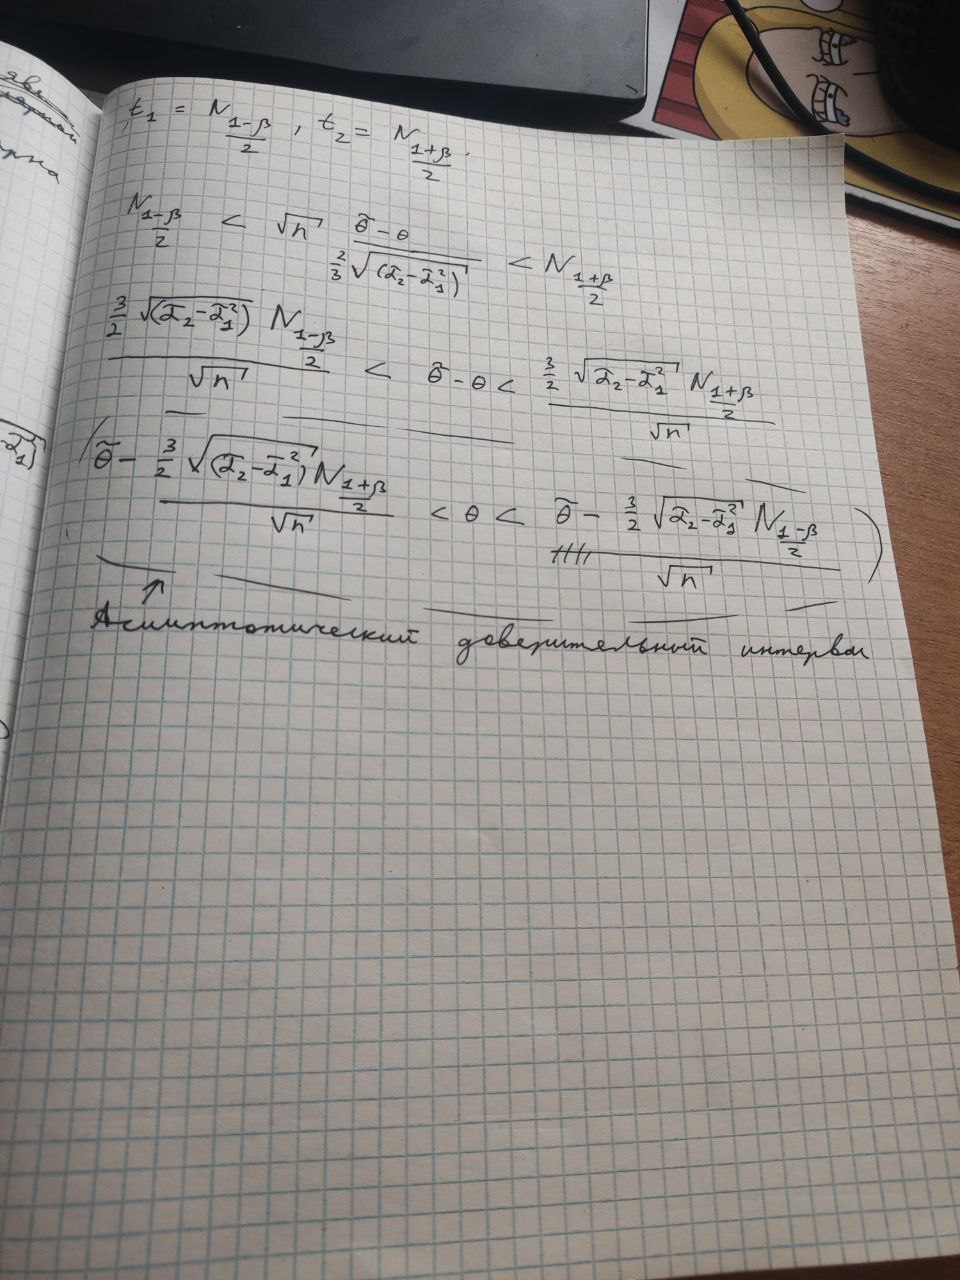 t₁ = N_{\frac{1-β}{2}}, t₂ = N_{\frac{1+β}{2}}.
N_{\frac{1-β}{2}} < √n \frac{\tilde{θ} - θ}{\frac{2}{3}\sqrt{(\bar{α}_2 - \bar{α}_1^2)}} < N_{\frac{1+β}{2}}
\frac{\frac{3}{2}\sqrt{(\bar{α}_2 - \bar{α}_1^2)} N_{\frac{1-β}{2}}}{√n} < \tilde{θ} - θ < \frac{\frac{3}{2}\sqrt{\bar{α}_2 - \bar{α}_1^2} N_{\frac{1+β}{2}}}{√n}
( \tilde{θ} - \frac{\frac{3}{2}\sqrt{(\bar{α}_2 - \bar{α}_1^2)} N_{\frac{1+β}{2}}}{√n} < θ < \tilde{θ} - \frac{\frac{3}{2}\sqrt{\bar{α}_2 - \bar{α}_1^2} N_{\frac{1-β}{2}}}{√n} )
↑
Асимптотический доверительный интервал